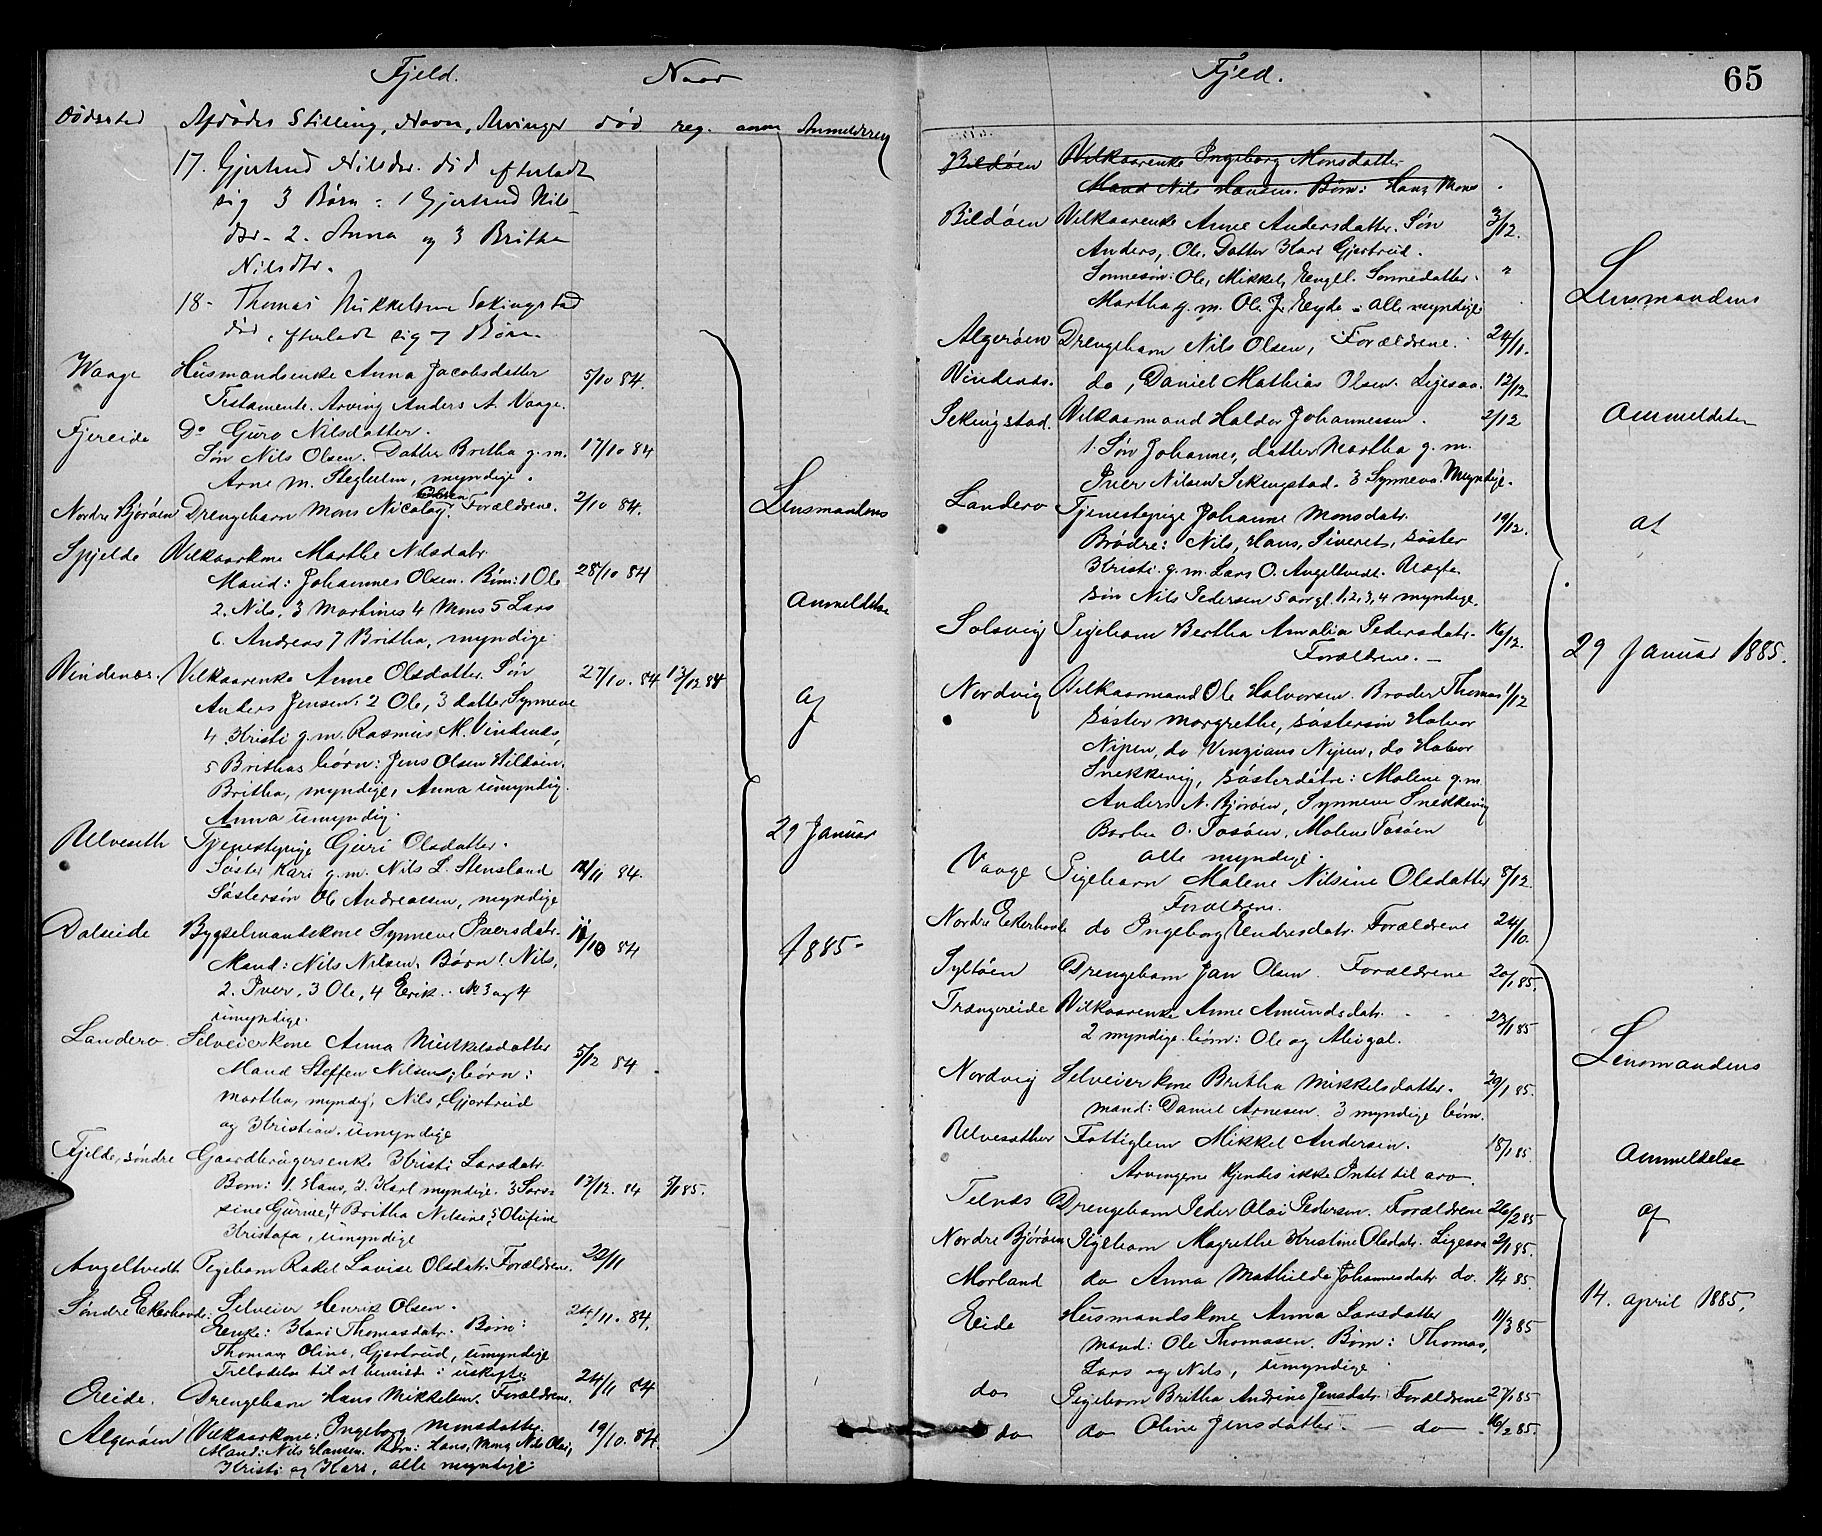 Fjeld. Naar
Dødssted Afdødes Stilling, Navn, Arvinger død reg. anm Anmelderen
17. Gjertrud Nilsdr. død efterladt
sig 3 Børn: 1 Gjertrud Nils-
dtr. 2. Anna og 3 Britha
Nilsdtr.
18- Thomas Mikkelsen Sekingstad
død, efterladt sig 7 Børn.
Waage Husmandsenke Anna Jacobsdatter 5/10 84.
Testamente. Arving Anders A. Vaage.
Fjereide Do Guro Nilsdatter.
Søn Nils Olsen. Datter Britha g.m. 17/10 84
Arne M. Steghelm, myndige.
Nordre Bjørøen Drengebarn Mons Nicolay. Forældrene. 2/10 84.
Lensmandens
Spjelde Vilkaarkone Marthe Nilsdatr.
Mand: Johannes Olsen. Børn: 1 Ole 28/10 84
2. Nils, 3 Martines 4 Mons 5 Lars
Anmeldelse
6. Andreas 7 Britha, myndige.
Windenæs. Vilkaarenke Anne Olsdatter. Søn 27/10. 84 13/12 84
Anders Jensen. 2 Ole, 3 datter Synneve
af
4. Kristi g.m. Rasmus M. Vindenæs,
5 Brithas børn: Jens Olsen Hildøin.
Britha, myndige, Anna umyndig.
Anna umyndig.
29 Januar
Ulveseth Tjenestepige Guri Olsdatter.
Søster Kari g.m. Nils L. Stensland 12/11 84.
Søstersøn Ole Andreassen, myndige
Dalseide Bygselmandskone Synneve Iversdatr. 11/10 84
Mand: Nils Nilsen. Børn 1 Nils,
1885.
2. Iver, 3 Ole, 4 Erik. No 3 og 4
umyndige.
Landero Selveierkone Anna Mikkelsdatter 5/12 84.
Mand Steffen Nilsens; børn:
Martha, myndig, Nils, Gjertrud
og Kristian, umyndige
Fjelde, søndre Gaardbrugersenke Kristi Larsdatr.
Børn: 1. Hans, 2. Karl myndige. 3 Lars- 17/12. 84
sine Gurine, 4 Britha Nilsine, 5 Olufine
Kristofa, umyndige
Angeltvedt Pigebarn Rakel Lovise Olsdatr. Forældrene. 22/11
Søndre Ekerhovde. Selveier Henrik Olsen. 24/11. 84.
Enke: Kari Thomasdatr. Børn:
Thomas Oline, Gjertrud, umyndige
Tilladelse til at hensidde i uskifte
Ereide. Drengebarn Hans Mikkelsen. Forældrene. 24/11 84
Algerøen Vilkaarkone: Ingeborg Monsdatter 19/10. 84.
Mand: Nils Hansen. Børn: Hans, Mons, Nils Ole,
Kristi og Kari, alle myndige
Fjeld. 65
Bildøen Vilkaarenke Ingeborg Monsdatter
Mand Nils Hansen. Børn: Hans Mons
Bildøen Vilkaarenke Anne Andersdatter. Søn 3/12.
Anders, Ole, Datter Kari Gjertrud.
Sønnesøn: Ole, Mikkel, Engel. Sønnedatter "
Martha g.m. Ole J. Eyde - alle myndige
Lensmandens
Algerøen Drengebarn Nils Olsen, Forældrene. 24/11.
Vindenæs. do, Daniel Mathias Olsen. Ligesaa. 12/12
Sekingstad. Vilkaarmand Haldor Johannessen. 2/12
Anmeldelse
1. Søn Johannes, datter Martha g.m.
Iver Nilsen Sekingstad. 3 Synneva. Myndige.
Landero Tjenestepige Johanne Monsdatr. 19/12.
af
Brødre: Nils, Hans, Siveret, søster
Kristi g.m. Lars O. Angeltvedt. Uægte
søn Nils Pedersen 5 aar gl. 1, 2, 3, 4 myndige.
Solsvig Pigebarn Bertha Amalia Pedersdatr. 16/12.
Forældrene. —
29 Januar 1885.
Nordvig Vilkaarmand Ole Halvorsen. Broder Thomas 1/12
søster Margrethe, søstersøn Halvor
Nipen, do Vinzians Nipen, do Halvor
Snekkevig, søsterdøtre: Malene g.m.
Anders N. Bjørøen, Synneve Snekkevig
Barbra O. Tosøen, Malene Tosøen
alle myndige.
Vaage Pigebarn Malene Nilsine Olsdatter 8/12.
Forældrene.
Nordre Ekerhovde do Ingeborg Endresdatr. Forældrene 24/10.
Syltøen Drengebarn Jan Olsen. Forældrene 20/1 85.
Trængereide Vilkaarenke Anne Amundsdatr. 23/1 85
2 myndige børn: Ole og Abigal.
Lensmandens
Nordvig Selveierkone Britha Mikkelsdatter. 29/1 85.
Mand: Daniel Arnesen. 3 myndige børn.
Ulvesæther Fattiglem Mikkel Andersen. 18/1 85.
Arvingene kjendes ikke Intet til arv.
Anmeldelse
Telnæs Drengebarn Peder Olai Pedersen. Forældrene 26/2 85
af
Nordre Bjørøen Pigebarn Magrethe Kristine Olsdatr. Ligesaa 2/1 85.
Morland do Anna Mathilde Johannesdatr do. 1/4 85.
14. april 1885.
Eide Husmandskone Anna Larsdatter 11/3 85
Mand: Ole Thomasen. Børn: Thomas,
Lars og Nils, umyndige
do Pigebarn Britha Andrine Jensdatr. Forældrene 27/1 85
do do Oline Jensdatter. — do — 16/2 85.